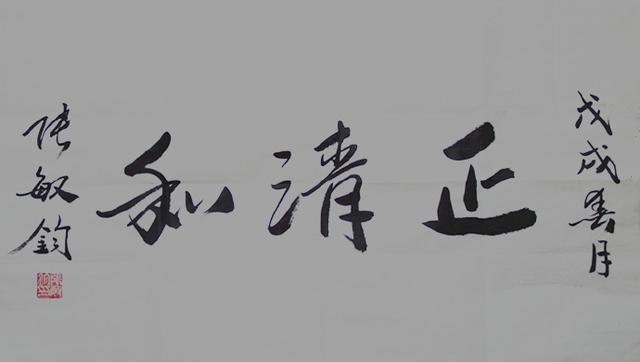 戊戌春月
正清和
张敏钧